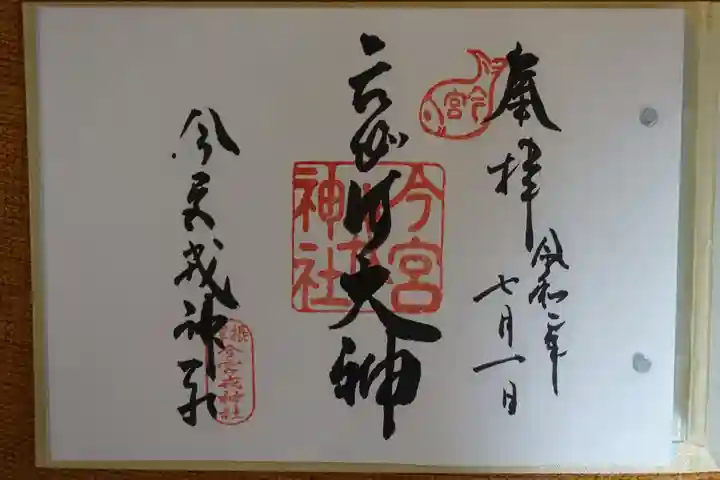 奉拝
今宮
令和二年
七月一日
大神
今宮
戎
神社
今宮戎神社
今宮戎神社